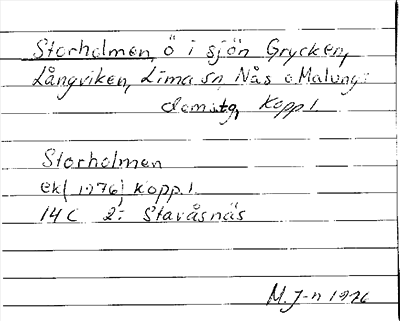 Storholmen, ö i sjön Grycken,
Långviken, Lima sn, Nås o Malungs
domstg, Kopp l
Storholmen
ek( 1976) Kopp. l.
14 C 2: Stavåsnäs
M. J-n 1976